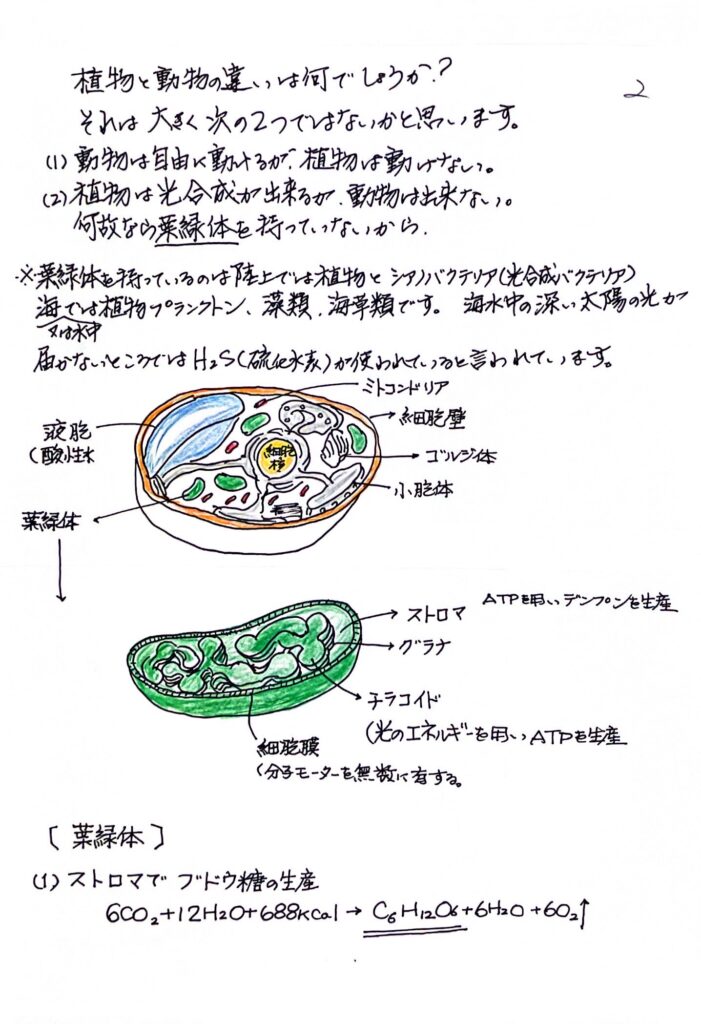 2
植物と動物の違いは何でしょうか?
それは大きく次の2つではないかと思います。
(1) 動物は自由に動けるが、植物は動けない。
(2) 植物は光合成が出来るが、動物は出来ない。
何故なら葉緑体を持っていないから.
※葉緑体を持っているのは陸上では植物とシアノバクテリア(光合成バクテリア)
海では植物プランクトン、藻類、海草類です。 海水中の深い太陽の光が
又は水中
届かないところではH2S(硫化水素)が使われていると言われています。
ミトコンドリア
液胞
(酸性水
細胞壁
細胞核
ゴルジ体
小胞体
葉緑体
ストロマ ATPを用いデンプンを生産
グラナ
チラコイド
(光のエネルギーを用いATPを生産
細胞膜
(分子モーターを無数に有する。
[葉緑体]
(1) ストロマでブドウ糖の生産
6CO2+12H2O+688kcal→C6H12O6+6H2O+6O2↑